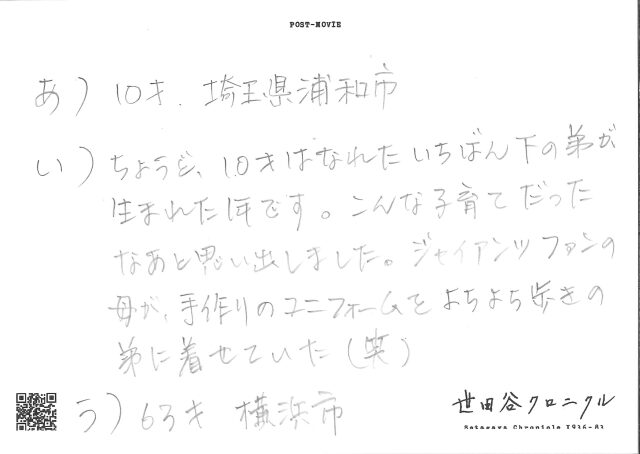 POST-MOVIE
あ) 10才. 埼玉県浦和市
い) ちょうど、10才はなれたいちばん下の弟が
生まれた年です。こんな子育てだった
なあと思い出しました。ジャイアンツファンの
母が、手作りのユニフォームをよちよち歩きの
弟に着せていた(笑)
う) 63才 横浜市
世田谷クロニクル
Setagaya Chronicle 1936-83